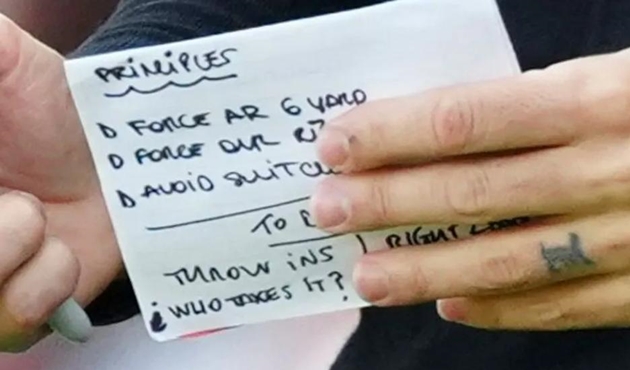 PRINCIPLES
D FORCE AR 6 YARD
D FORCE OUR
D AVOID SWITCH
TO
THROW INS | RIGHT
¿ WHO TAKES IT?